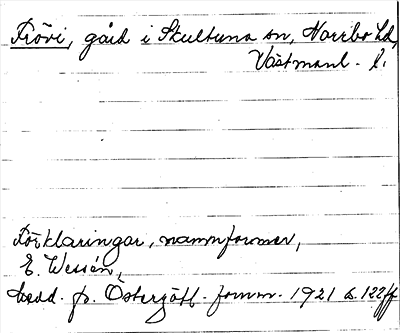 Frövi, gård i Skultuna sn, Norrbo hd,
Västmanl. l.
Förklaringar, namnformer,
E. Wessén,
Medd. fr. Östergötl. fornm. 1921 s. 122ff